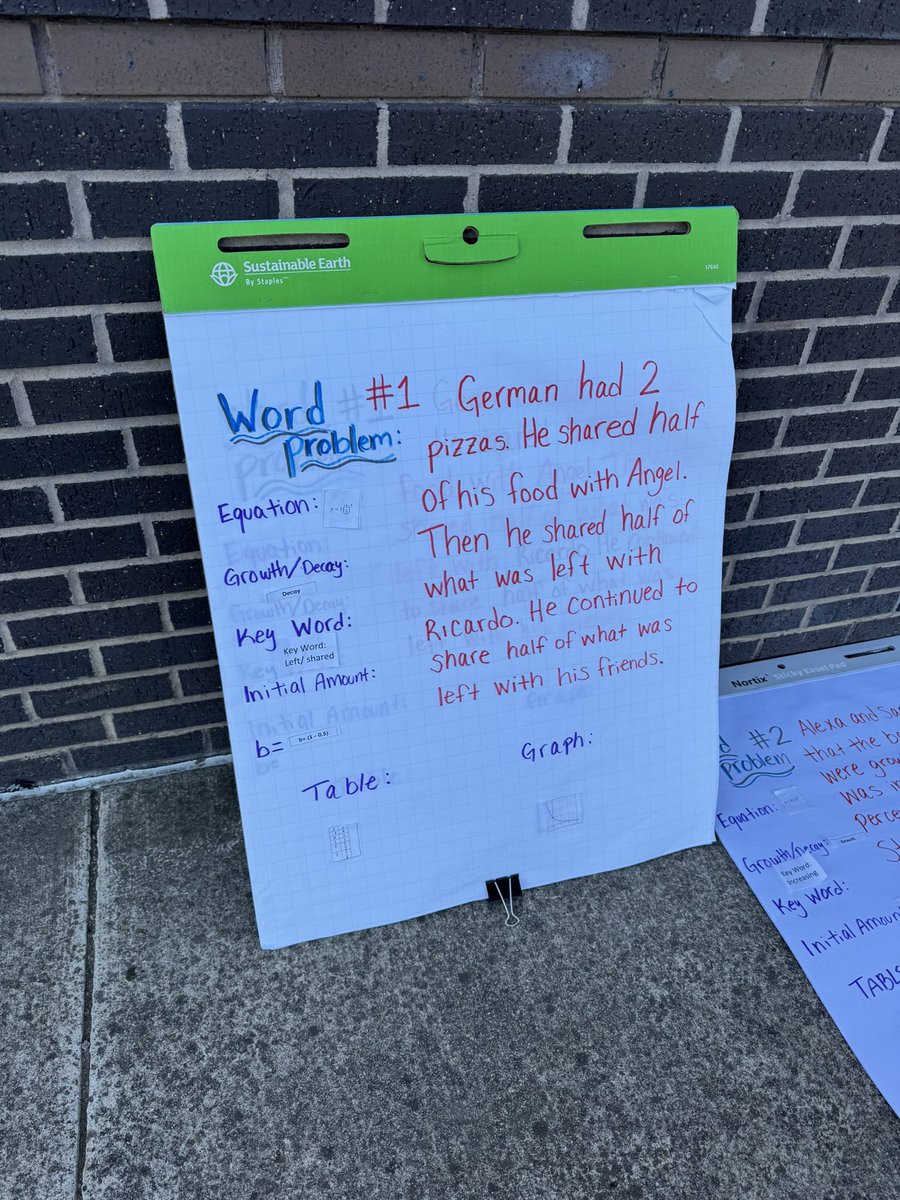 Sustainable Earth
By Staples™
17640
Word
Problem:
#1 German had 2
pizzas. He shared half
of his food with Angel.
Then he shared half of
what was left with
Ricardo. He continued to
share half of what was
left with his friends.
Equation:
Growth/Decay:
Decay
Key Word:
Key Word:
Left/ shared
Initial Amount:
b=
b= (1 - 0.5)
Table:
Graph:
Nortix™ Sticky Easel Pad
#2
Problem
Alexa and
that the
were
was
Equation:
Growth/Decay:
Growth
Key Word:
Increasing
Key Word:
Initial Amount